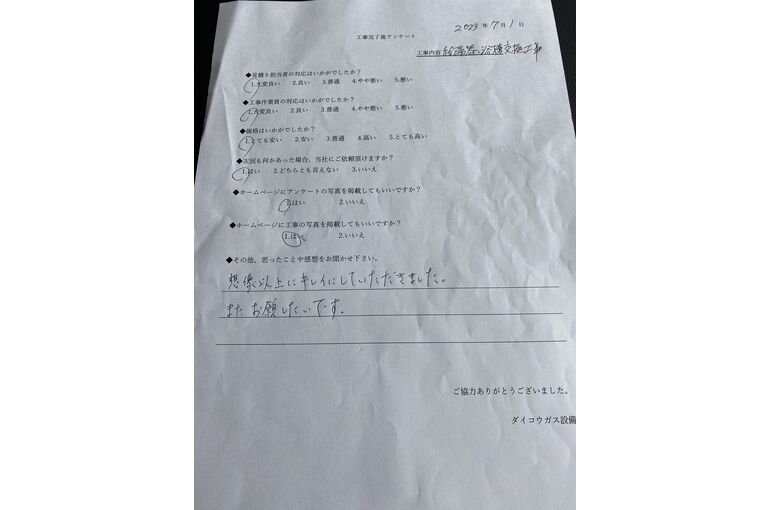 2023年7月1日
工事完了後アンケート
工事内容 給湯器・浴槽交換工事
◆見積り担当者の対応はいかがでしたか?
1.大変良い 2.良い 3.普通 4.やや悪い 5.悪い
◆工事作業員の対応はいかがでしたか?
1.大変良い 2.良い 3.普通 4.やや悪い 5.悪い
◆価格はいかがでしたか?
1.とても安い 2.安い 3.普通 4.高い 5.とても高い
◆次回も何かあった場合、当社にご依頼頂けますか?
1.はい 2.どちらとも言えない 3.いいえ
◆ホームページにアンケートの写真を掲載してもいいですか?
1.はい 2.いいえ
◆ホームページに工事の写真を掲載してもいいですか?
1.はい 2.いいえ
◆その他、思ったことや感想をお聞かせ下さい。
想像以上にキレイにしていただきました。
またお願したいです。
ご協力ありがとうございました。
ダイコウガス設備